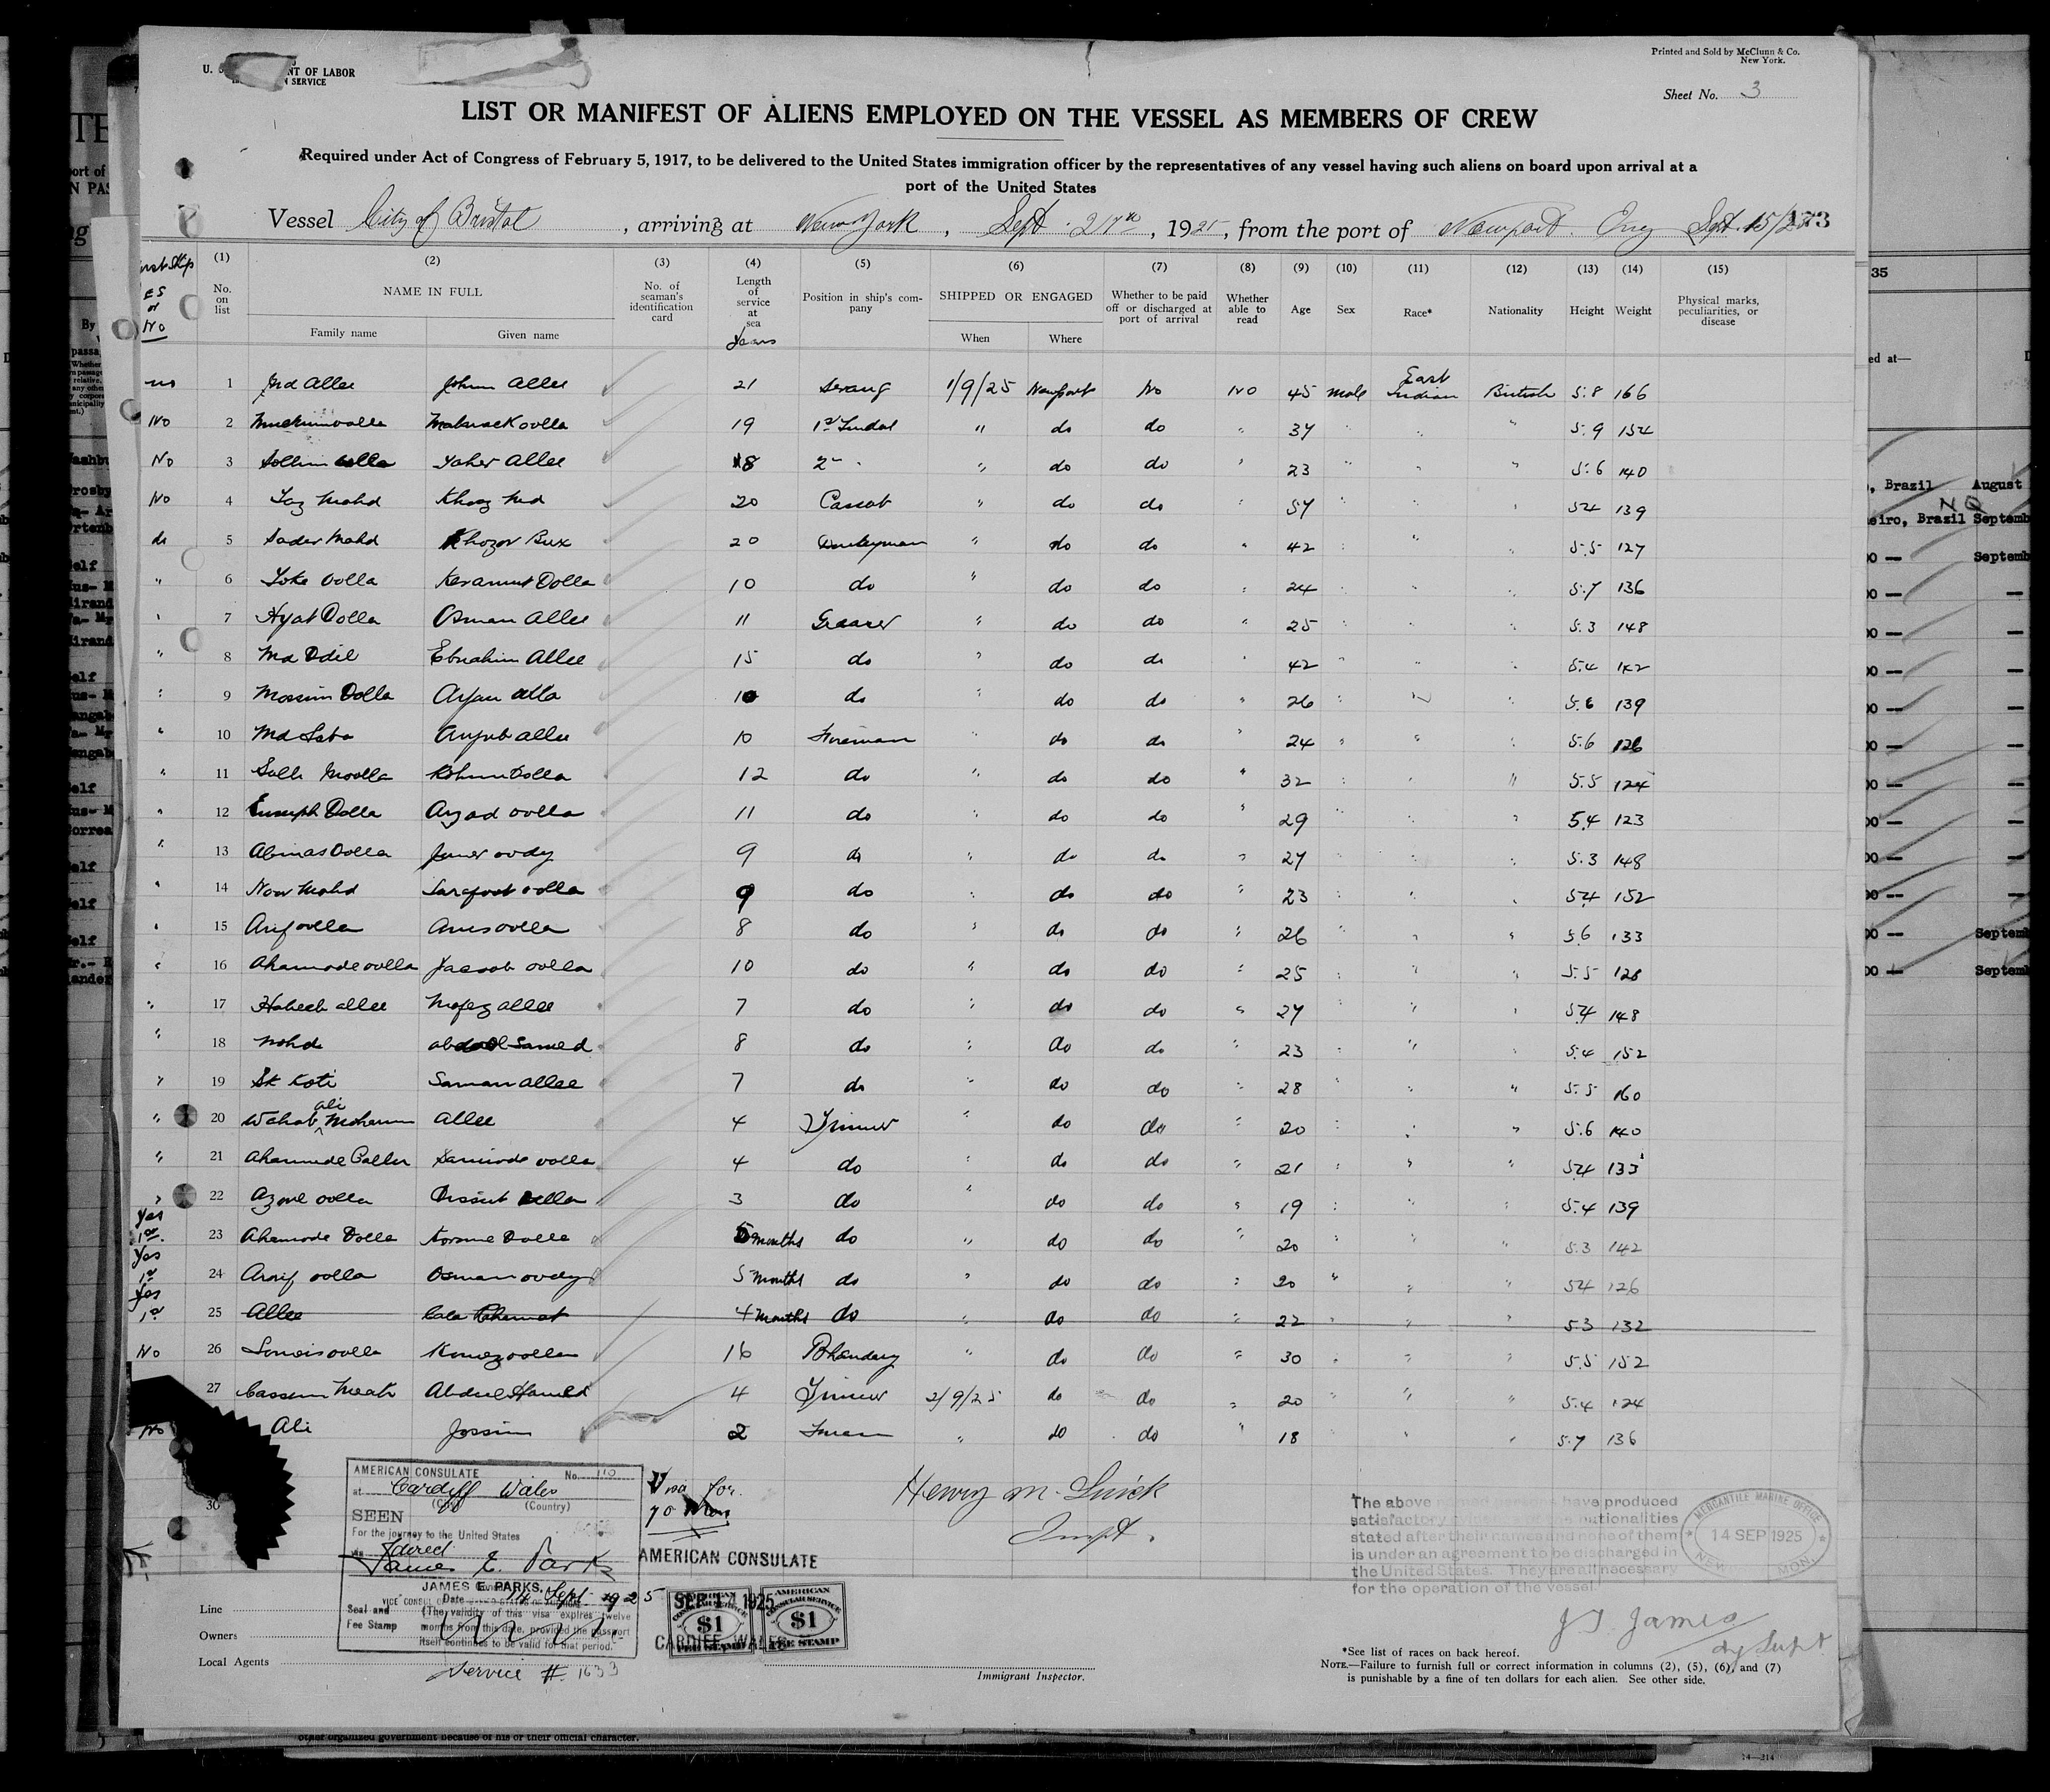 U. S. DEPARTMENT OF LABOR
SERVICE
Printed and Sold by McClunn & Co.
New York.
Sheet No. 3
LIST OR MANIFEST OF ALIENS EMPLOYED ON THE VESSEL AS MEMBERS OF CREW
Required under Act of Congress of February 5, 1917, to be delivered to the United States immigration officer by the representatives of any vessel having such aliens on board upon arrival at a
port of the United States
Vessel City of Bristol, arriving at New York, Sept. 27th, 1925, from the port of Newport. Eng Sept. 15/25 173
(1) (2) (3) (4) (5) (6) (7) (8) (9) (10) (11) (12) (13) (14) (15)
No. on list NAME IN FULL No. of seaman's identification card Length of service at sea Position in ship's company SHIPPED OR ENGAGED Whether to be paid off or discharged at port of arrival Whether able to read Age Sex Race* Nationality Height Weight Physical marks, peculiarities, or disease
Family name Given name Years When Where
no 1 Md Allee Johur Allee 21 Serang 1/9/25 Newport No No 45 Male East Indian British 5.8 166
No 2 Mabarack oolla 19 1st Tindal " do do " 37 " " " 5.9 154
No 3 Taher Allee 18 2nd " " do do " 23 " " " 5.6 140
No 4 Taz Mohd Md 20 Cassab " do do " 57 " " " 5.4 139
do 5 Sader Mohd Khozor Bux 20 Donkeyman " do do " 42 " " " 5.5 127
" 6 Toke oolla Keramut Oolla 10 do " do do " 24 " " " 5.7 136
" 7 Hyat Oolla Osman Allee 11 Greaser " do do " 25 " " " 5.3 148
" 8 Md Odil Ebrahim Allee 15 do " do do " 42 " " " 5.4 142
" 9 Mossim Oolla Arfan alla 10 do " do do " 26 " " " 5.6 139
" 10 Md Saba Aryub allee 10 Fireman " do do " 24 " " " 5.6 126
" 11 Salli Moolla Rohim Oolla 12 do " do do " 32 " " " 5.5 124
" 12 Eusuph Oolla Azad oolla 11 do " do do " 29 " " " 5.4 123
" 13 Abinas Oolla Juner oody 9 do " do do " 27 " " " 5.3 148
" 14 Noor Mohd Sarafoot oolla 9 do " do do " 23 " " " 5.4 152
" 15 Arif oolla Anis oolla 8 do " do do " 26 " " " 5.6 133
" 16 Ahamode oolla Jacoob oolla 10 do " do do " 25 " " " 5.5 128
" 17 Habeeb allee Mofez allee 7 do " do do " 27 " " " 5.4 148
" 18 Mohd abdool Samed 8 do " do do " 23 " " " 5.4 152
" 19 Sk Koti Saman allee 7 do " do do " 28 " " " 5.5 160
" 20 Wahab ali Moharum Allee 4 Trimmer " do do " 20 " " " 5.6 140
" 21 Ahamude oolla 4 do " do do " 21 " " " 5.4 133
" 22 Azool oolla oolla 3 do " do do " 19 " " " 5.4 139
Yes 1st 23 Ahamode Oolla Korome Oolla 5 months do " do do " 20 " " " 5.3 142
Yes 1st 24 Arif oolla Osman oody 5 months do " do do " 20 " " " 5.4 126
Yes 1st 25 Allee Cala Rahamat 4 months do " do do " 22 " " " 5.3 132
No 26 oolla oolla 16 Bhandary " do do " 30 " " " 5.5 152
27 Cassim Abdul Hamed 4 Trimmer 2/9/25 do do " 20 " " " 5.4 124
No Ali Jossim 2 " do do " 18 " " " 5.7 136
30
AMERICAN CONSULATE No. 110
at Cardiff Wales
(City) (Country)
SEEN
For the journey to the United States
James E. Parks
JAMES E. PARKS,
VICE CONSUL
Date 14 Sept 1925
Seal and Fee Stamp
(The validity of this visa expires twelve
months from this date, provided the passport
itself continues to be valid for that period.
Service # 1633
Visa for
70 Men
AMERICAN CONSULATE
SEP 14 1925
CARDIFF, WALES
AMERICAN CONSULAR SERVICE $1 FEE STAMP
AMERICAN CONSULAR SERVICE $1 FEE STAMP
Henry M.
The above named persons have produced
satisfactory evidence of the nationalities
stated after their names and none of them
is under an agreement to be discharged in
the United States. They are all necessary
for the operation of the vessel.
MERCANTILE MARINE OFFICE
14 SEP 1925
NEWPORT MON.
J. James
Dy Supt
Line
Owners
Local Agents
Immigrant Inspector.
*See list of races on back hereof.
NOTE.—Failure to furnish full or correct information in columns (2), (5), (6), and (7)
is punishable by a fine of ten dollars for each alien. See other side.
other organized government because of his or their official character.
14—214
35
ed at—
, Brazil August
NO
eiro, Brazil Septemb
Septemb